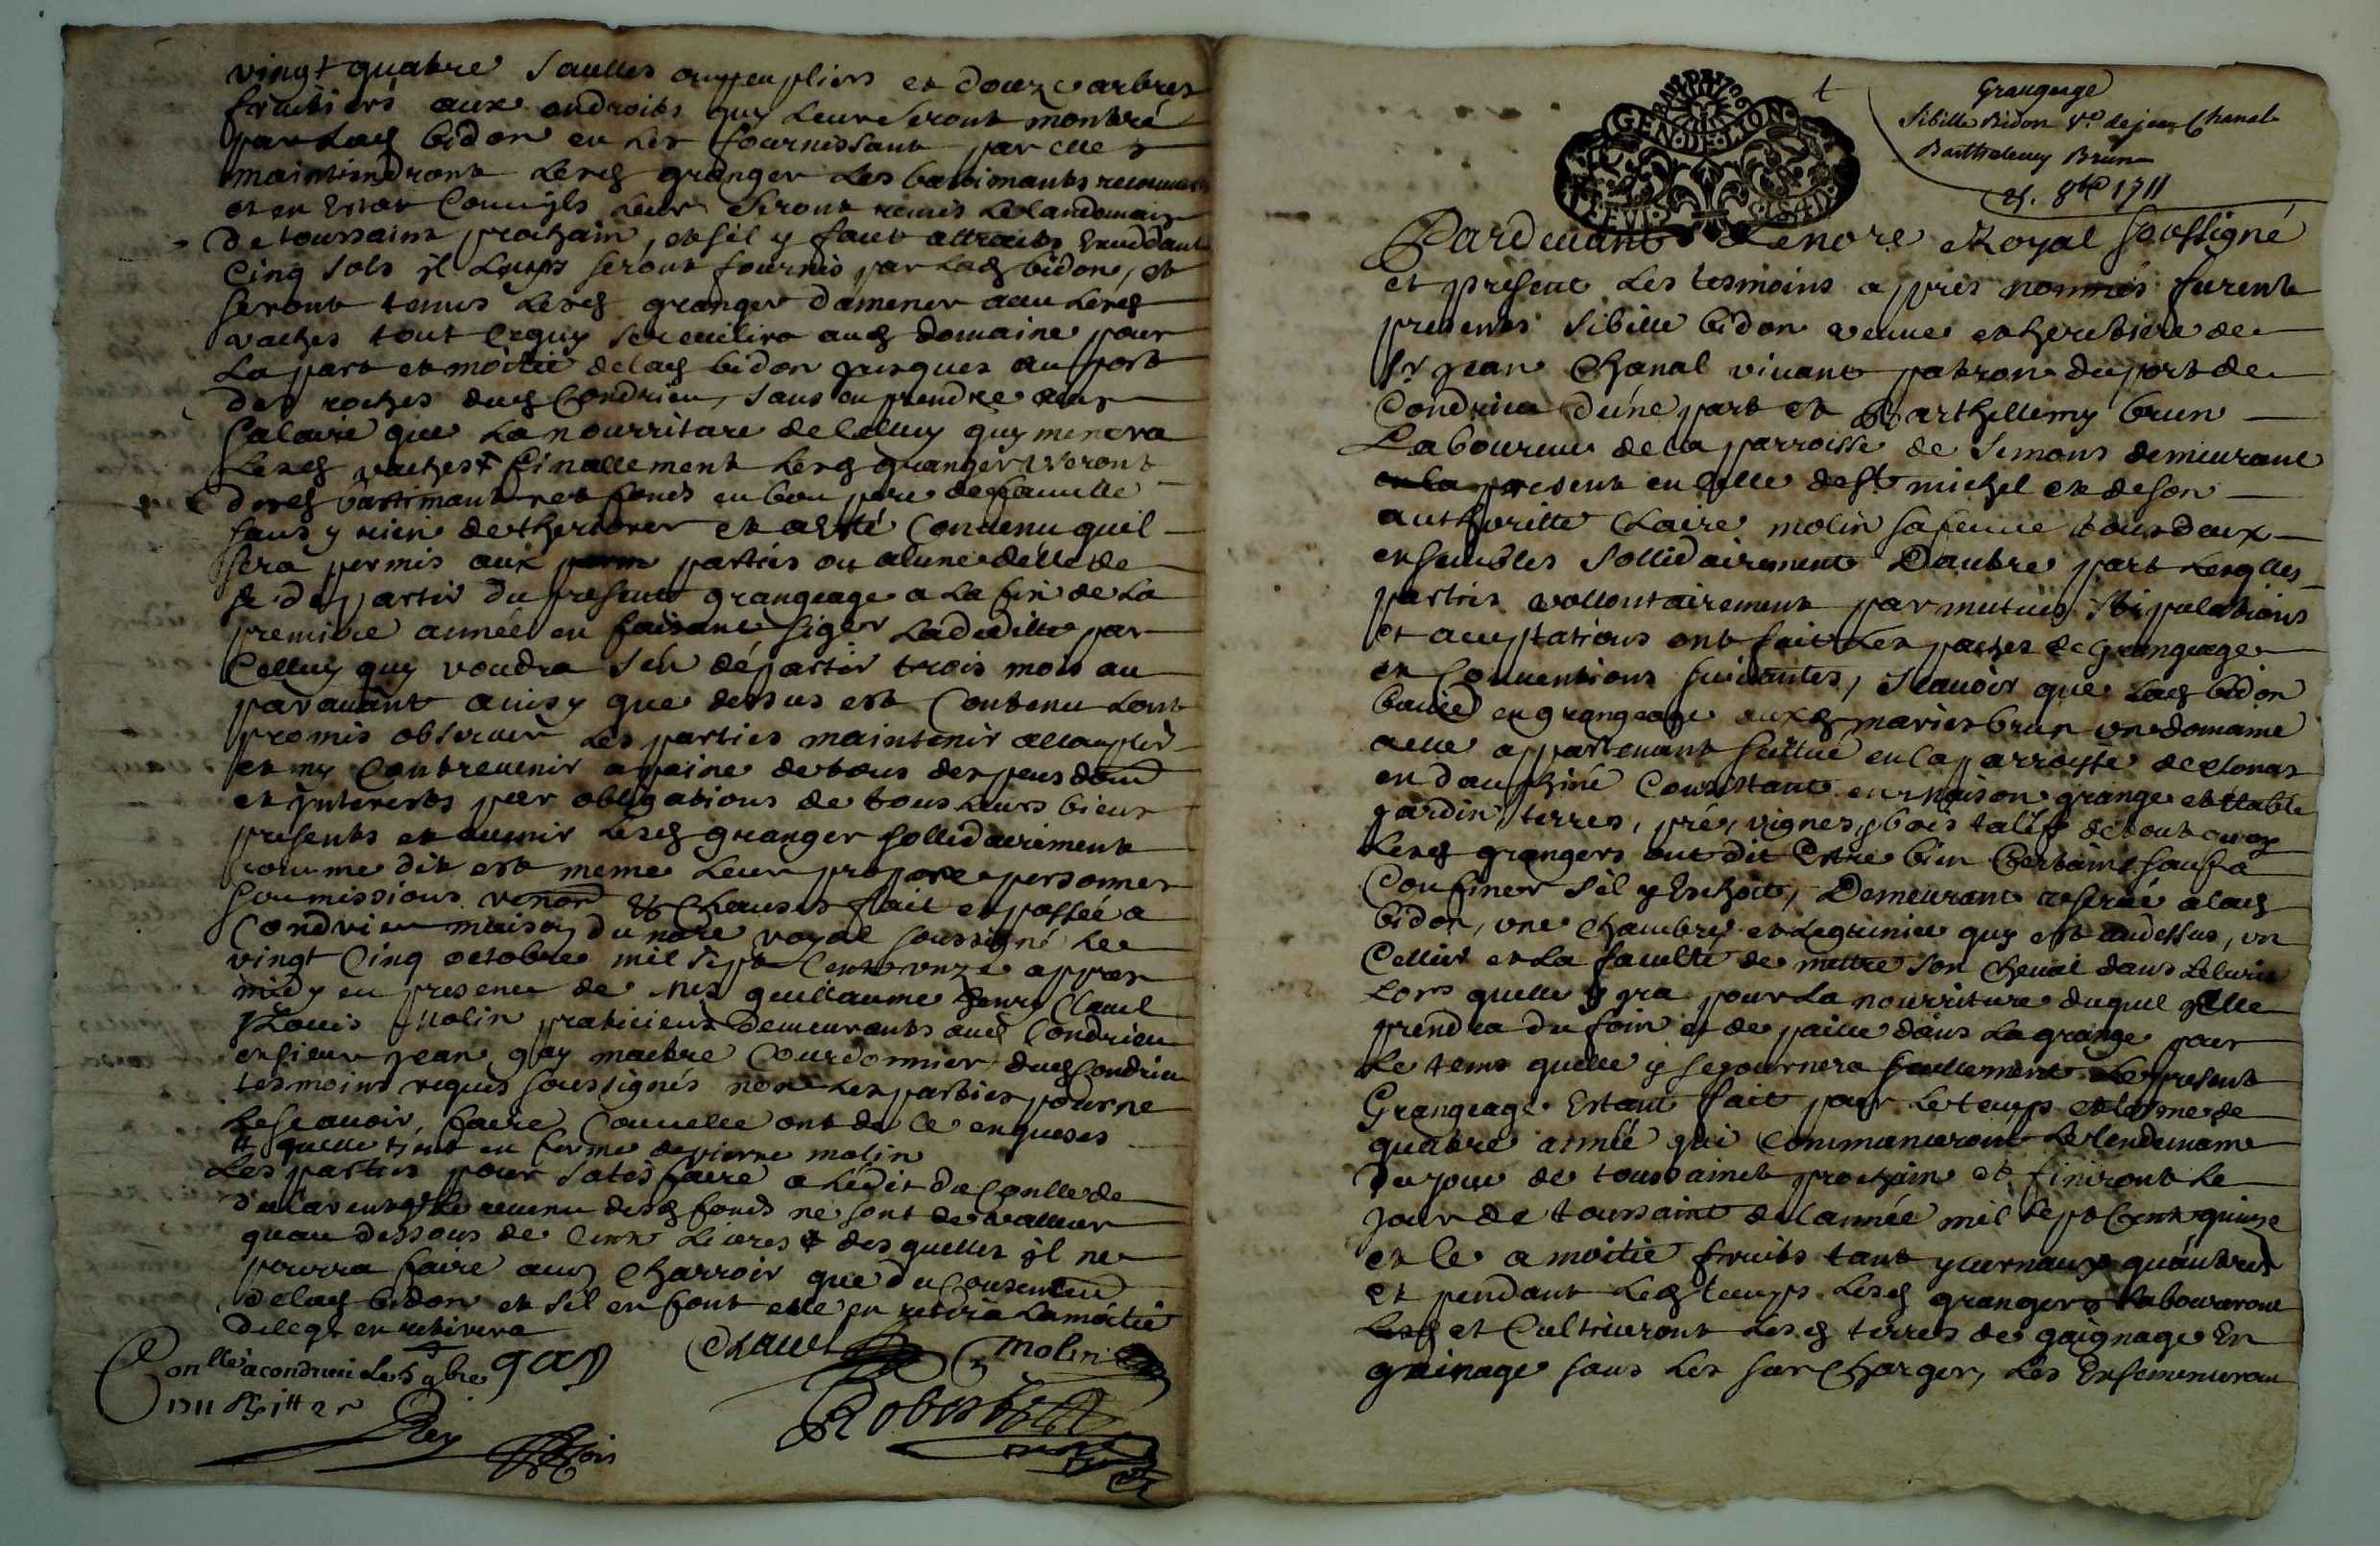 vingt quatre saulles ou peupliers et douze arbres
fruitiers aux endroits quy leur seront montré
par lad bidon en les fournissant par elle &
maintiendront lesd granger les bastimants recouverts
et en estat comm'ils leur seront remis le landemain
de toussaint prochain, et sil y faut attraits exceddant
cinq sols il seront fournis par lad bidon, et
seront tenus lesd granger damener avec lesd
vaches tout ce quy se receuilira aud domaine pour
la part et moitié delad bidon jusques au port
des roches dud Condrieu, sans en prendre aucun
salaire que la nourriture de celluy quy menera
lesd vaches & finallement lesd granger useront
desd bastimants et fonds en bon pere de famille
sans y rien detheriorer et a esté convenu quil
sera permis aux parties ou a lune delle de
se departir du present grangeage a la fin de la
premiere année en faisant la deditte par
celluy quy voudra sen départir trois mois au
paravant ainsy que dessus est contenu lont
promis observer les parties maintenir accomplir
et ny contrevenir a peine de tous despens dom
et interests par obligations de tous leurs biens
presents et avenir lesd granger sollidairement
comme dit est meme leur propre personnes
soumissions renon & clauses fait et passée a
Condrieu maison du nore royal soussigné le
vingt cinq octobre mil sept cents unze appres
midy en presence de Mes guillaume henry Clavel
Louis Molin praticiens demeurants aud Condrieu
et sieur jean gay maitre Courdonnier dud Condrieu
tesmoins requis soussignés non les parties pour ne
le scavoir faire comme elle ont dit de ce enquises
quelle tient en ferme de pierre molin
Les parties pour satisfaire a l'édit du Conlle de
declarent que le revenu desd fonds ne sont de valleur
quau dessous de cent livres & desquelles il ne
pourra faire aucun charroir que du consentem
delad bidon et sil en font elle en retira la moitié
en retirera
Conllé a condrieu le 5 9bre gay
1711
Clavel Molin
Robert
Rey
Grangeage
Sibille Bidon Ve de jean Chanal
Barthelemy Brun
25. 8bre 1711
GEN DE LYON
Pardevant Le nore Royal soussigné
et present les tesmoins apprès nommés furent
presents Sibille bidon veuve et heritiere de
sr jean Chanal vivant patron du port de
Condrieu d'une part et Barthellemy brun
Laboureur de la parroisse de Simons demeurant
en la present en celle de st michel et de son
authoritte Claire molin sa femme tous deux
ensembles sollidairement Dautre part lesquelles
parties vollontairement par mutues stipulations
et acceptations ont fait les paches de Grangeage
et conventions suivantes, scavoir que lad bidon
baille en grangeage auxd mariés brun un domaine
a elle appartenant scittué en la parroisse de clonas
en dauphiné consistant en maison grange estable
jardin, terres, pré, vignes, bois talif de tout quoy
lesd grangers ont dit estre bien Certains sauf a
confiner sil y eschoit, Demeurant reservé a lad
bidon, une chambre et le grenier quy est audessus, un
cellier et la faculté de mettre son cheval dans lécurie
Lors quelle y yra pour la nourriture duquel elle
prendra du foin et de paille dans la grange pour
le tems quelle y sejournera seullement Le present
Grangeage estant fait pour le temps et terme de
quatre année qui commanceront le lendemain
du jour de toussaint prochain et finiront le
jour de toussaint de l'année mil sept cent quinze
et le a moitié fruits tant yvernaux quautres
et pendant led temps lesd grangers labouraront
et cultiveront lesd terres de gaignage en
gainage sans les surcharger, les ensemenceront